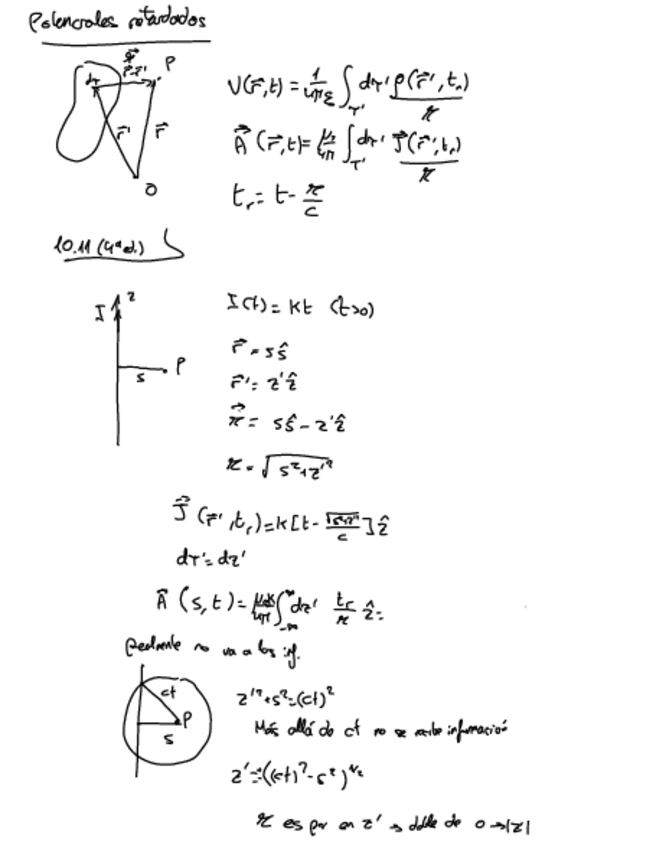 Potenciales retardados
𝓇⃗
r⃗-r⃗'
P
dτ
r⃗'
r⃗
O
V(r⃗,t) = 1/4πε ∫_τ' dτ' ρ(r⃗',t_r)/𝓇
A⃗(r⃗,t) = μ/4π ∫_τ' dτ' J⃗(r⃗',t_r)/𝓇
t_r = t - 𝓇/c
10.11 (4ª ed.)
I
z
s
P
I(t) = kt (t>0)
r⃗ = sŝ
r⃗' = z'ẑ
𝓇⃗ = sŝ - z'ẑ
𝓇 = √(s²+z'²)
J⃗(r⃗',t_r) = k[t - √(s²+z'²)/c]ẑ
dτ' = dz'
A⃗(s,t) = μ₀k/4π ∫_{-∞}^{∞} dz' t_r/𝓇 ẑ =
Realmente no va a los inf.
ct
P
s
z'² + s² = (ct)²
Más allá de ct no se recibe información
z' = ±((ct)² - s²)^{1/2}
𝓇 es par en z' → doble de 0 → |z|